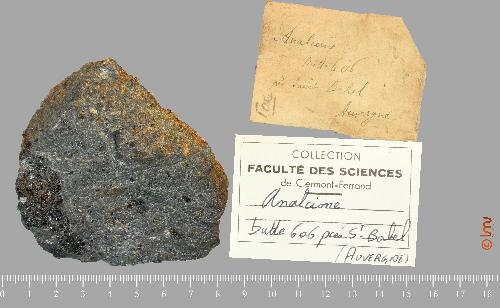 Analcime
butte 606
près Saint Babel
Auvergne
COLLECTION
FACULTÉ DES SCIENCES
de Clermont-Ferrand
Analcime
butte 606 près St Babel
(AUVERGNE)
© jmv
0 1 2 3 4 5 6 7 8 9 10 11 12 13 14 15 16 17 18